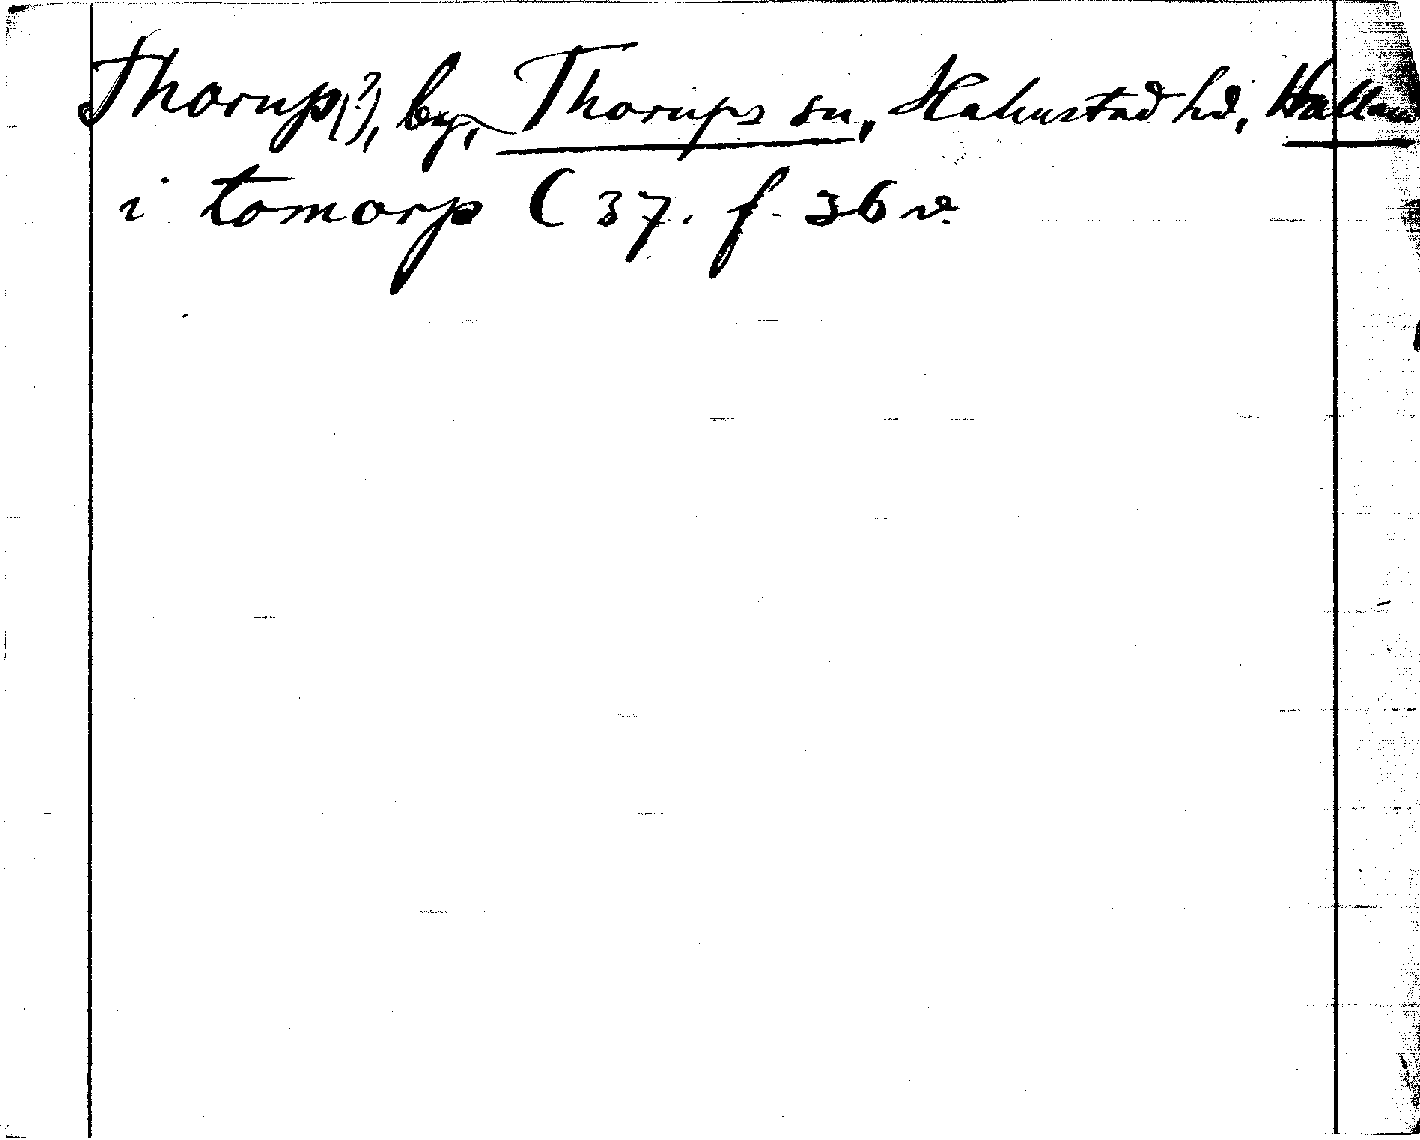 Thorup(?), by, Thorups sn, Halmstad hd, Halland
i tomorp C 37. f. 36 v.